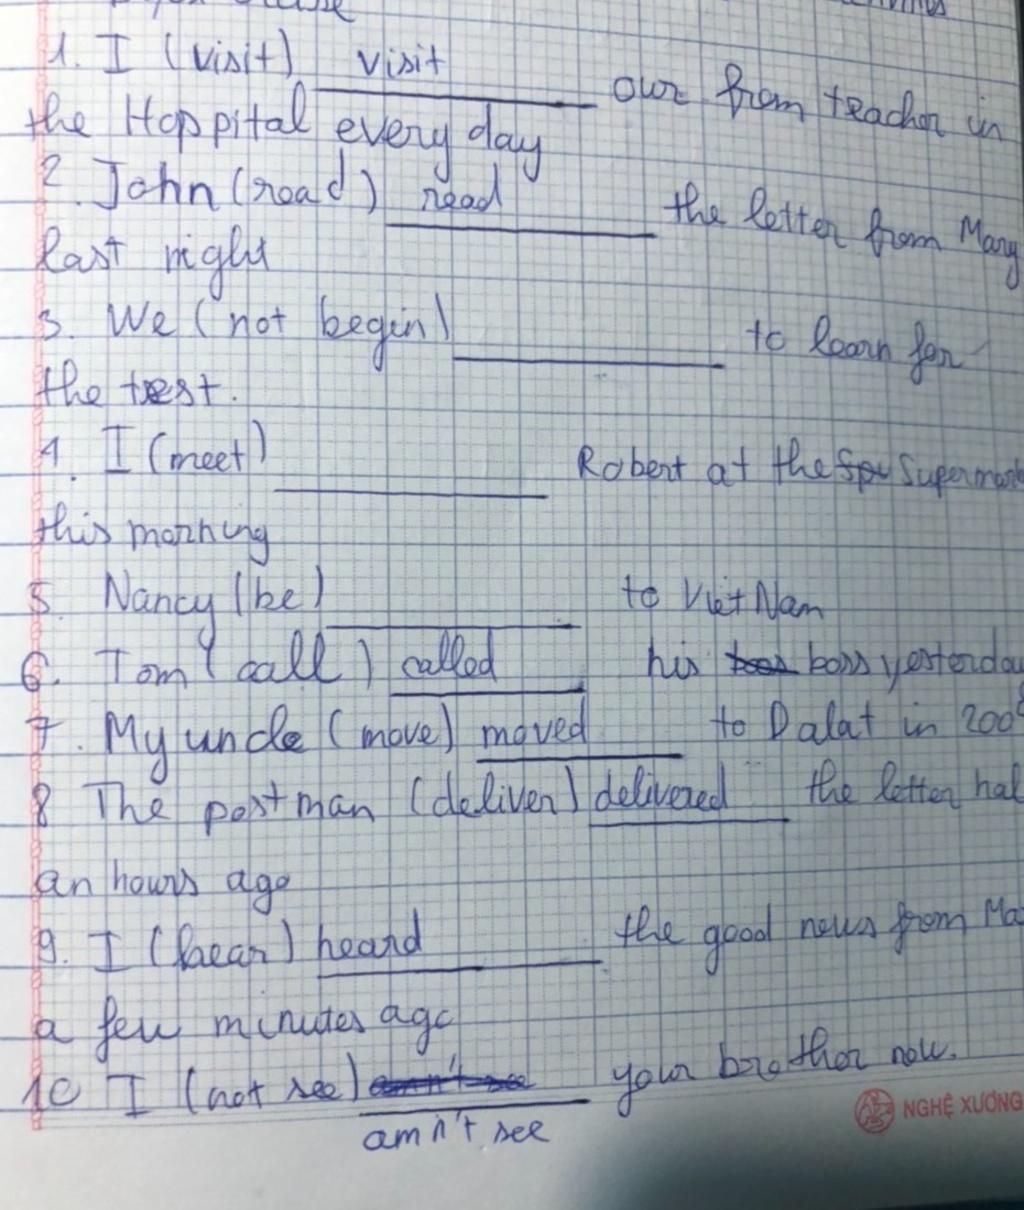 1. I (visit) visit our from teacher in
the Hoppital every day
2. John (read) read the letter from Mary
last night
3. We (not begin) to learn for
the test.
4. I (meet) Robert at the Supermark
this morning
5. Nancy (be) to Việt Nam
6. Tom (call) called his boss yesterday
7. My uncle (move) moved to Dalat in 2008
8 The postman (deliver) delivered the letter hal
an hours ago
9. I (hear) heard the good news from Ma
a few minutes ago
10 I (not see) your brother now.
amn't see
NGHỆ XƯƠNG